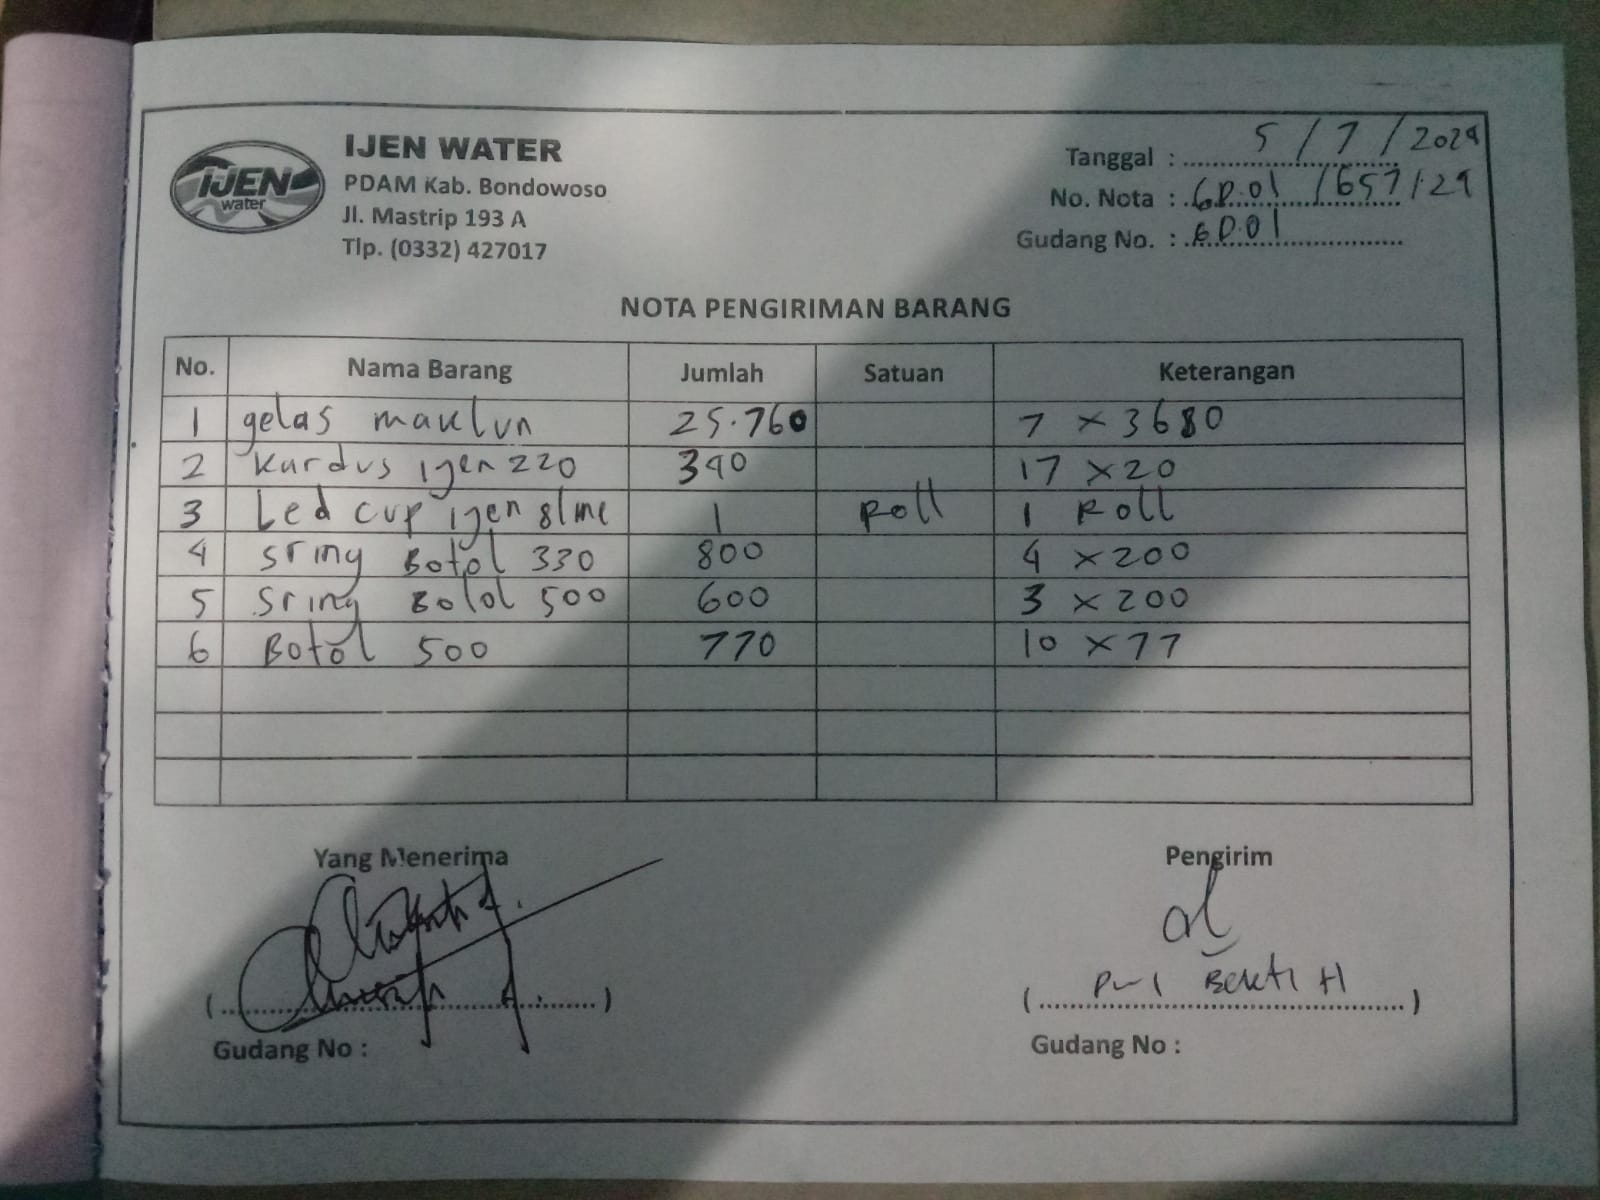 IJEN water
IJEN WATER
PDAM Kab. Bondowoso
Jl. Mastrip 193 A
Tlp. (0332) 427017
Tanggal : 5 / 7 / 2024
No. Nota : GD.01 /657/24
Gudang No. : GD.01
NOTA PENGIRIMAN BARANG
No. Nama Barang Jumlah Satuan Keterangan
1 gelas maklun 25.760 7 x 3680
2 Kardus ijen 220 340 17 x 20
3 Led cup ijen 8 line 1 Roll 1 Roll
4 Sring Botol 330 800 4 x 200
5 Sring Botol 500 600 3 x 200
6 Botol 500 770 10 x 77
Yang Menerima Pengirim
Bekti H
Gudang No : Gudang No :